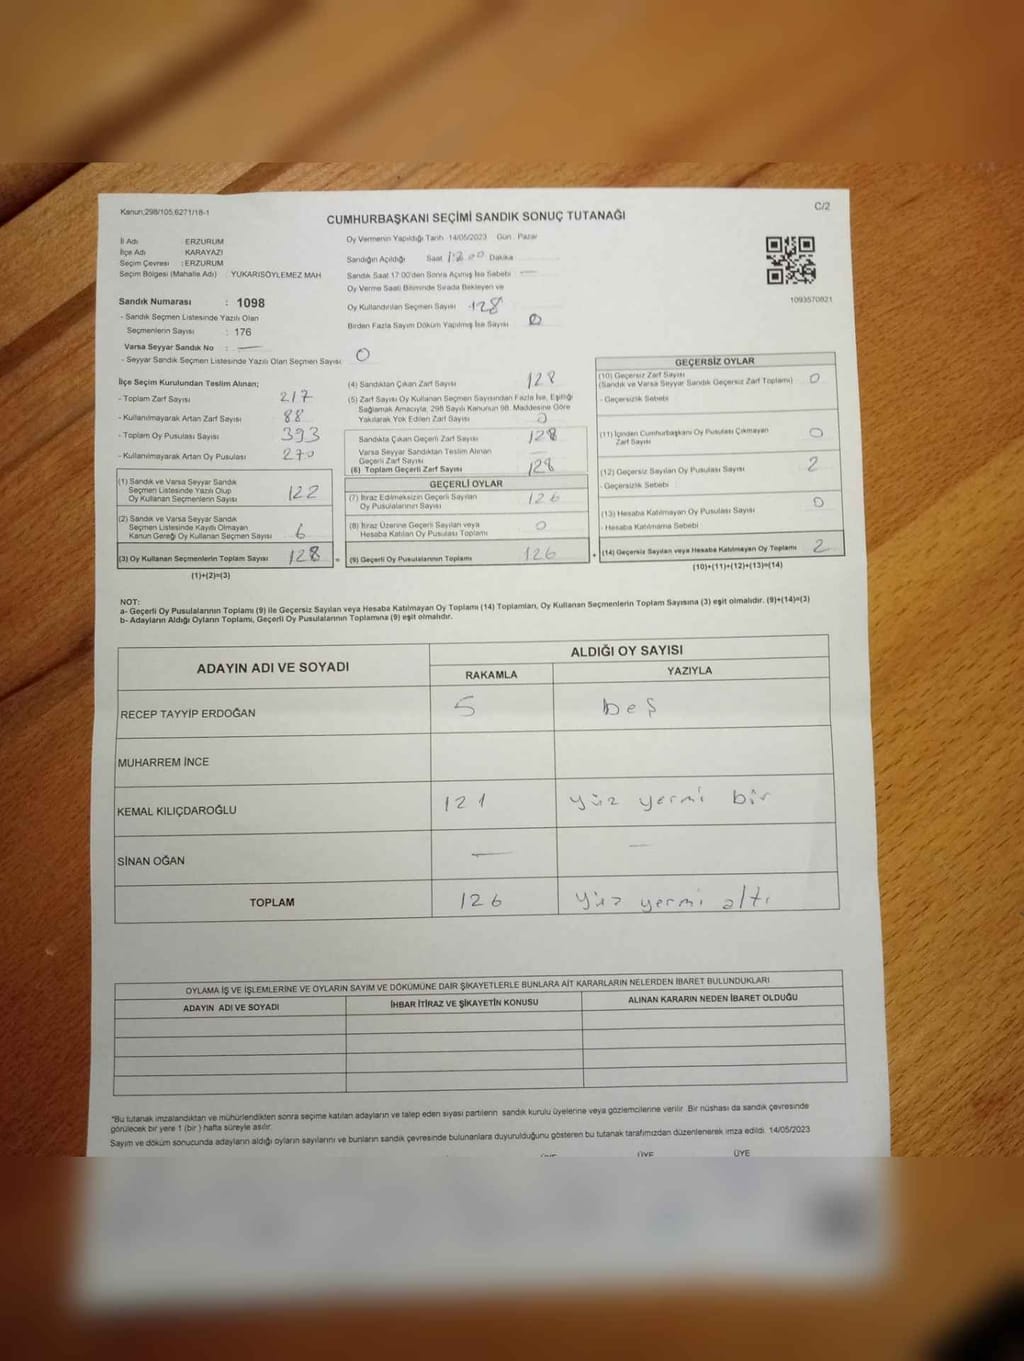 Kanun;298/105,6271/18-1
C/2
CUMHURBAŞKANI SEÇİMİ SANDIK SONUÇ TUTANAĞI
İl Adı : ERZURUM
İlçe Adı : KARAYAZI
Seçim Çevresi : ERZURUM
Seçim Bölgesi (Mahalle Adı) : YUKARISÖYLEMEZ MAH
Sandık Numarası : 1098
- Sandık Seçmen Listesinde Yazılı Olan
Seçmenlerin Sayısı : 176
Varsa Seyyar Sandık No : —
- Seyyar Sandık Seçmen Listesinde Yazılı Olan Seçmen Sayısı 0
Oy Vermenin Yapıldığı Tarih 14/05/2023 Gün : Pazar
Sandığın Açıldığı Saat Dakika
Sandık Saat 17:00'den Sonra Açılmış İse Sebebi —
Oy Verme Saati Bitiminde Sırada Bekleyen ve
Oy Kullandırılan Seçmen Sayısı 128
Birden Fazla Sayım Döküm Yapılmış İse Sayısı 0
1093570821
İlçe Seçim Kurulundan Teslim Alınan;
- Toplam Zarf Sayısı 217
- Kullanılmayarak Artan Zarf Sayısı 88
- Toplam Oy Pusulası Sayısı 393
- Kullanılmayarak Artan Oy Pusulası 270
(1) Sandık ve Varsa Seyyar Sandık
Seçmen Listesinde Yazılı Olup
Oy Kullanan Seçmenlerin Sayısı 122
(2) Sandık ve Varsa Seyyar Sandık
Seçmen Listesinde Kayıtlı Olmayan
Kanun Gereği Oy Kullanan Seçmen Sayısı 6
(3) Oy Kullanan Seçmenlerin Toplam Sayısı 128 =
(1)+(2)=(3)
(4) Sandıktan Çıkan Zarf Sayısı 128
(5) Zarf Sayısı Oy Kullanan Seçmen Sayısından Fazla İse, Eşitliği
Sağlamak Amacıyla, 298 Sayılı Kanunun 98. Maddesine Göre
Yakılarak Yok Edilen Zarf Sayısı 0
Sandıkta Çıkan Geçerli Zarf Sayısı 128
Varsa Seyyar Sandıktan Teslim Alınan
Geçerli Zarf Sayısı —
(6) Toplam Geçerli Zarf Sayısı 128
GEÇERLİ OYLAR
(7) İtiraz Edilmeksizin Geçerli Sayılan
Oy Pusulalarının Sayısı 126
(8) İtiraz Üzerine Geçerli Sayılan veya
Hesaba Katılan Oy Pusulası Toplamı 0
(9) Geçerli Oy Pusulalarının Toplamı 126 +
GEÇERSİZ OYLAR
(10) Geçersiz Zarf Sayısı
(Sandık ve Varsa Seyyar Sandık Geçersiz Zarf Toplamı) 0
- Geçersizlik Sebebi
(11) İçinden Cumhurbaşkanı Oy Pusulası Çıkmayan
Zarf Sayısı 0
(12) Geçersiz Sayılan Oy Pusulası Sayısı 2
- Geçersizlik Sebebi
(13) Hesaba Katılmayan Oy Pusulası Sayısı 0
- Hesaba Katılmama Sebebi
(14) Geçersiz Sayılan veya Hesaba Katılmayan Oy Toplamı 2
(10)+(11)+(12)+(13)=(14)
NOT:
a- Geçerli Oy Pusulalarının Toplamı (9) ile Geçersiz Sayılan veya Hesaba Katılmayan Oy Toplamı (14) Toplamları, Oy Kullanan Seçmenlerin Toplam Sayısına (3) eşit olmalıdır. (9)+(14)=(3)
b- Adayların Aldığı Oyların Toplamı, Geçerli Oy Pusulalarının Toplamına (9) eşit olmalıdır.
ADAYIN ADI VE SOYADI
ALDIĞI OY SAYISI
RAKAMLA YAZIYLA
RECEP TAYYİP ERDOĞAN 5 beş
MUHARREM İNCE
KEMAL KILIÇDAROĞLU 121 yüz yermi bir
SİNAN OĞAN — —
TOPLAM 126 yüz yermi altı
OYLAMA İŞ VE İŞLEMLERİNE VE OYLARIN SAYIM VE DÖKÜMÜNE DAİR ŞİKAYETLERLE BUNLARA AİT KARARLARIN NELERDEN İBARET BULUNDUKLARI
ADAYIN ADI VE SOYADI İHBAR İTİRAZ VE ŞİKAYETİN KONUSU ALINAN KARARIN NEDEN İBARET OLDUĞU
*Bu tutanak imzalandıktan ve mühürlendikten sonra seçime katılan adayların ve talep eden siyasi partilerin sandık kurulu üyelerine veya gözlemcilerine verilir. Bir nüshası da sandık çevresinde
görülecek bir yere 1 (bir) hafta süreyle asılır.
Sayım ve döküm sonucunda adayların aldığı oyların sayılarını ve bunların sandık çevresinde bulunanlara duyurulduğunu gösteren bu tutanak tarafımızdan düzenlenerek imza edildi. 14/05/2023
ÜYE ÜYE